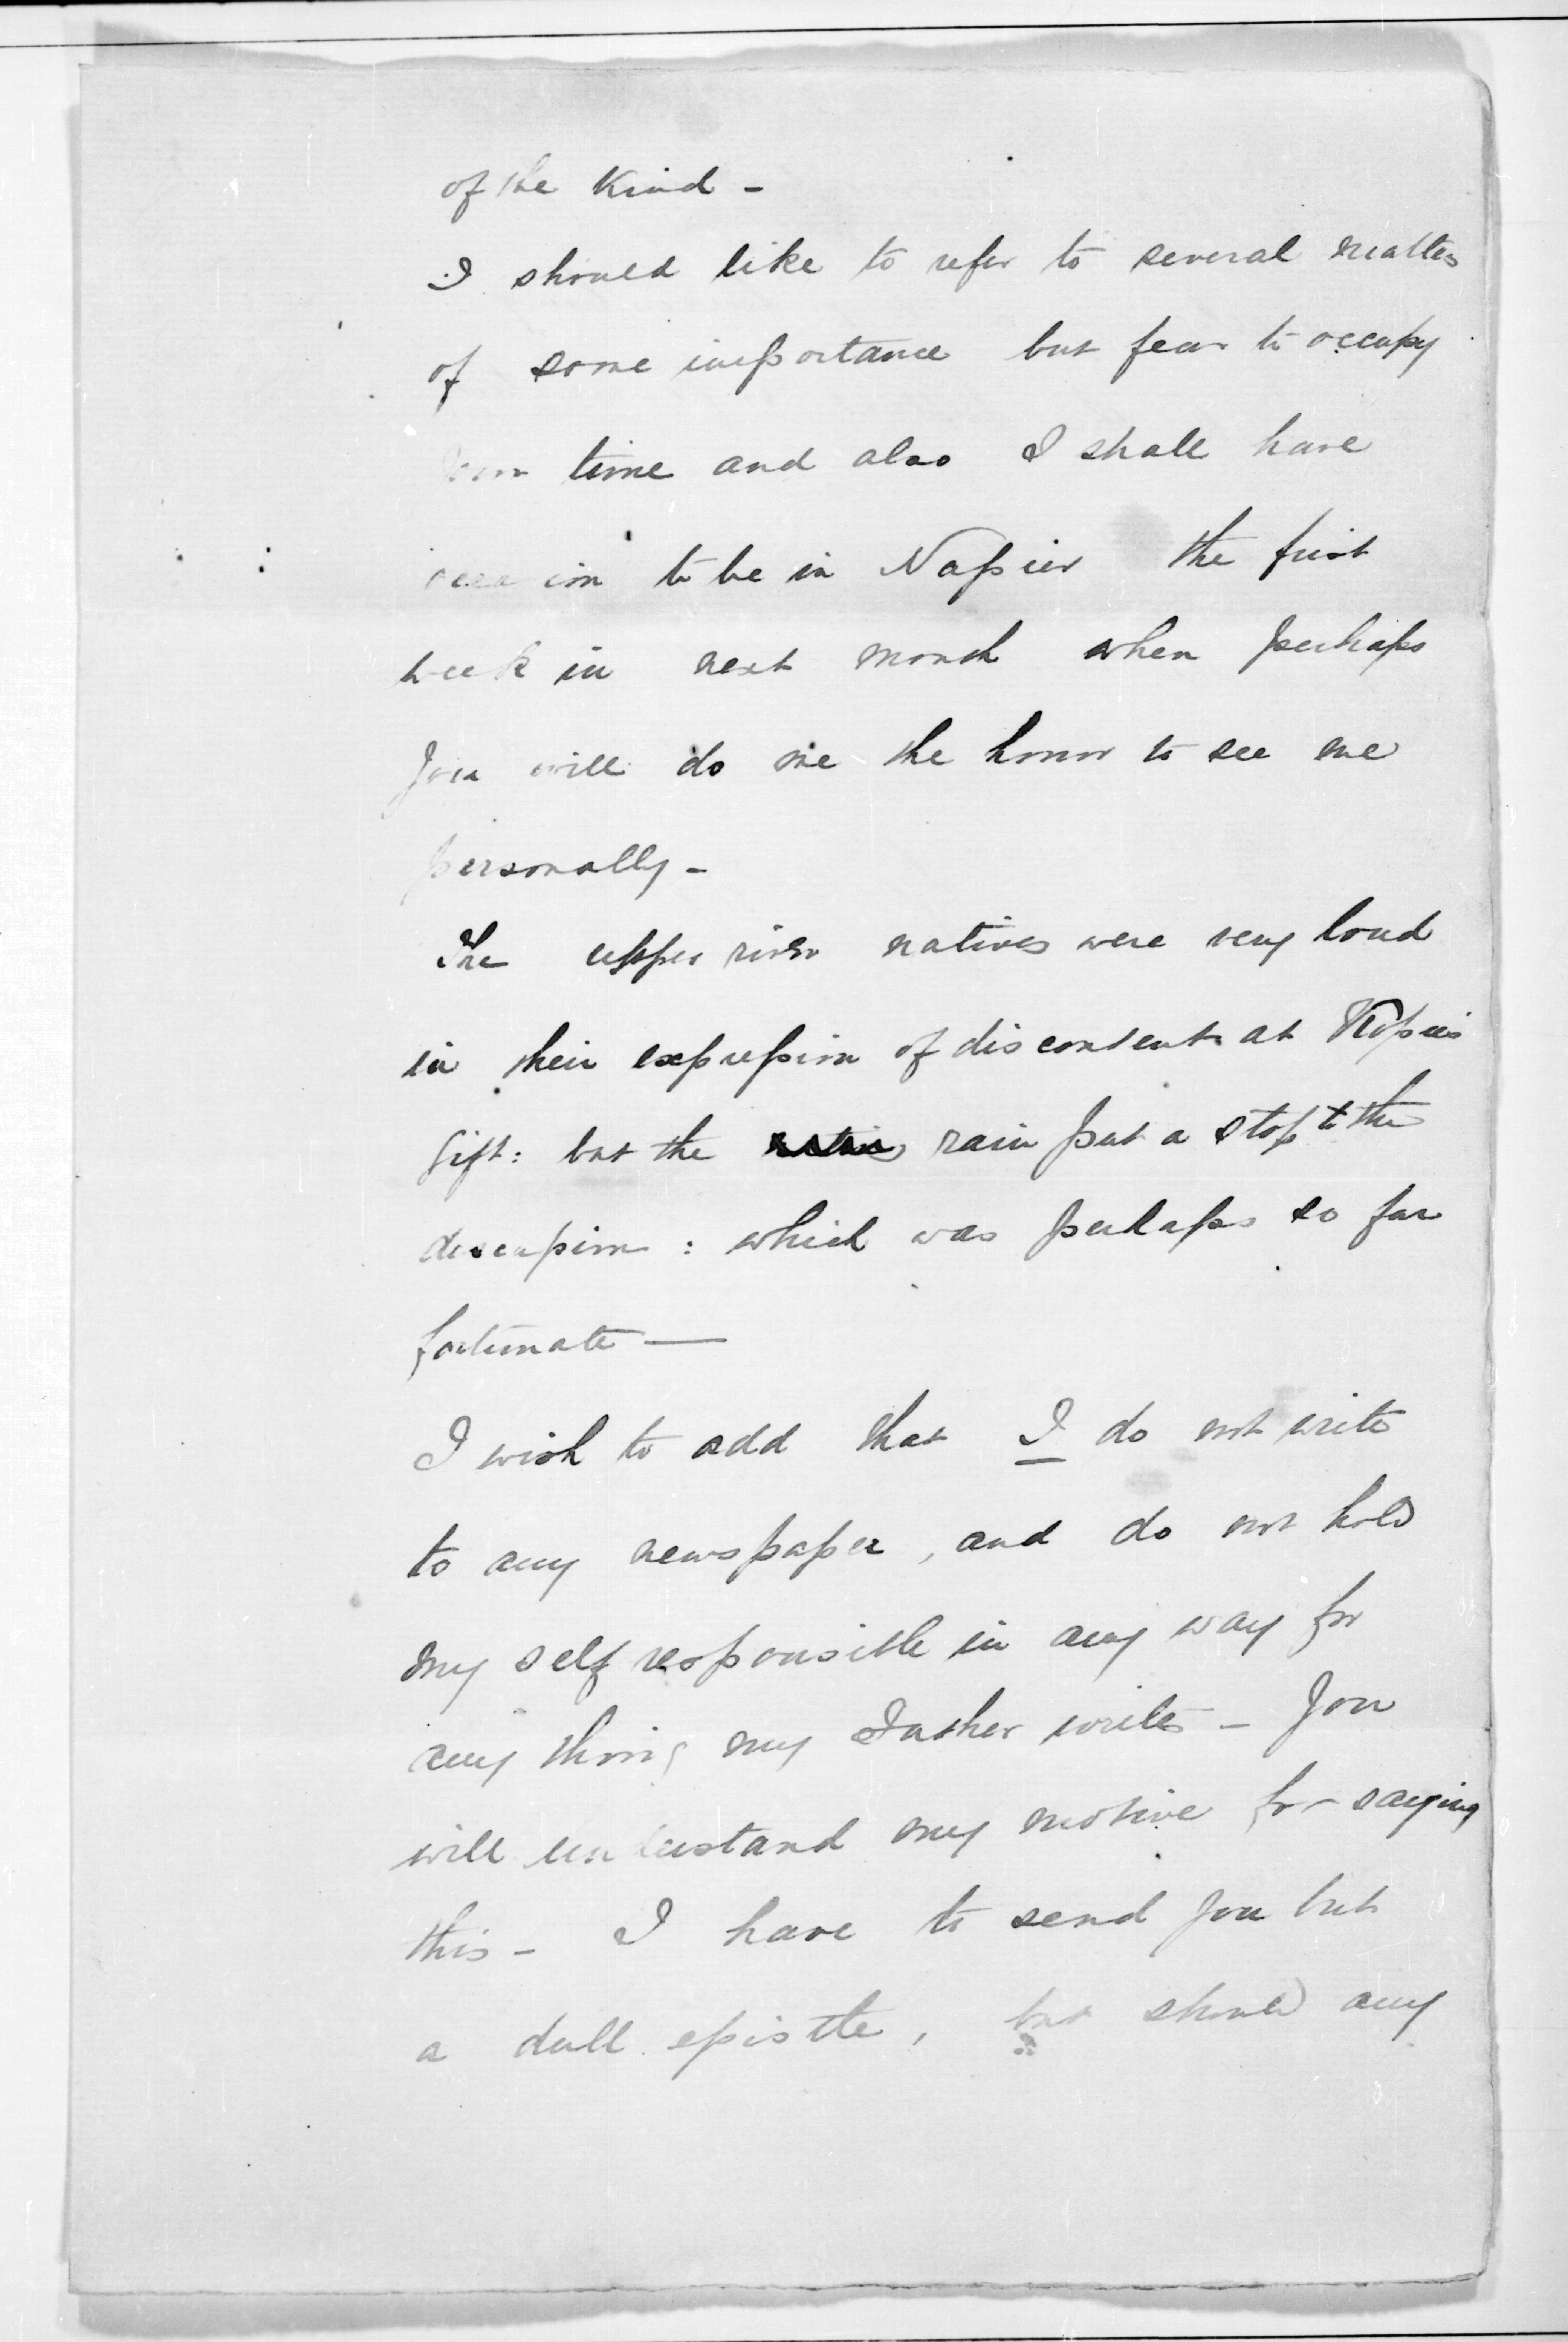 of the Kind -
I should like to refer to several matters
of some importance but fear to occupy
your time and also I shall have
occasion to be in Napier the first
week in next month when perhaps
you will do me the honor to see me
personally -
The upper river natives were very loud
in their expression of discontent at
gift: but the rain put a stop to the
discussion : which was perhaps so far
fortunate —
I wish to add that I do not write
to any newspaper, and do not hold
my self responsible in any way for
any thing my Father writes - You
will understand my motive for saying
this - I have to send you but
a dull epistle, but should any